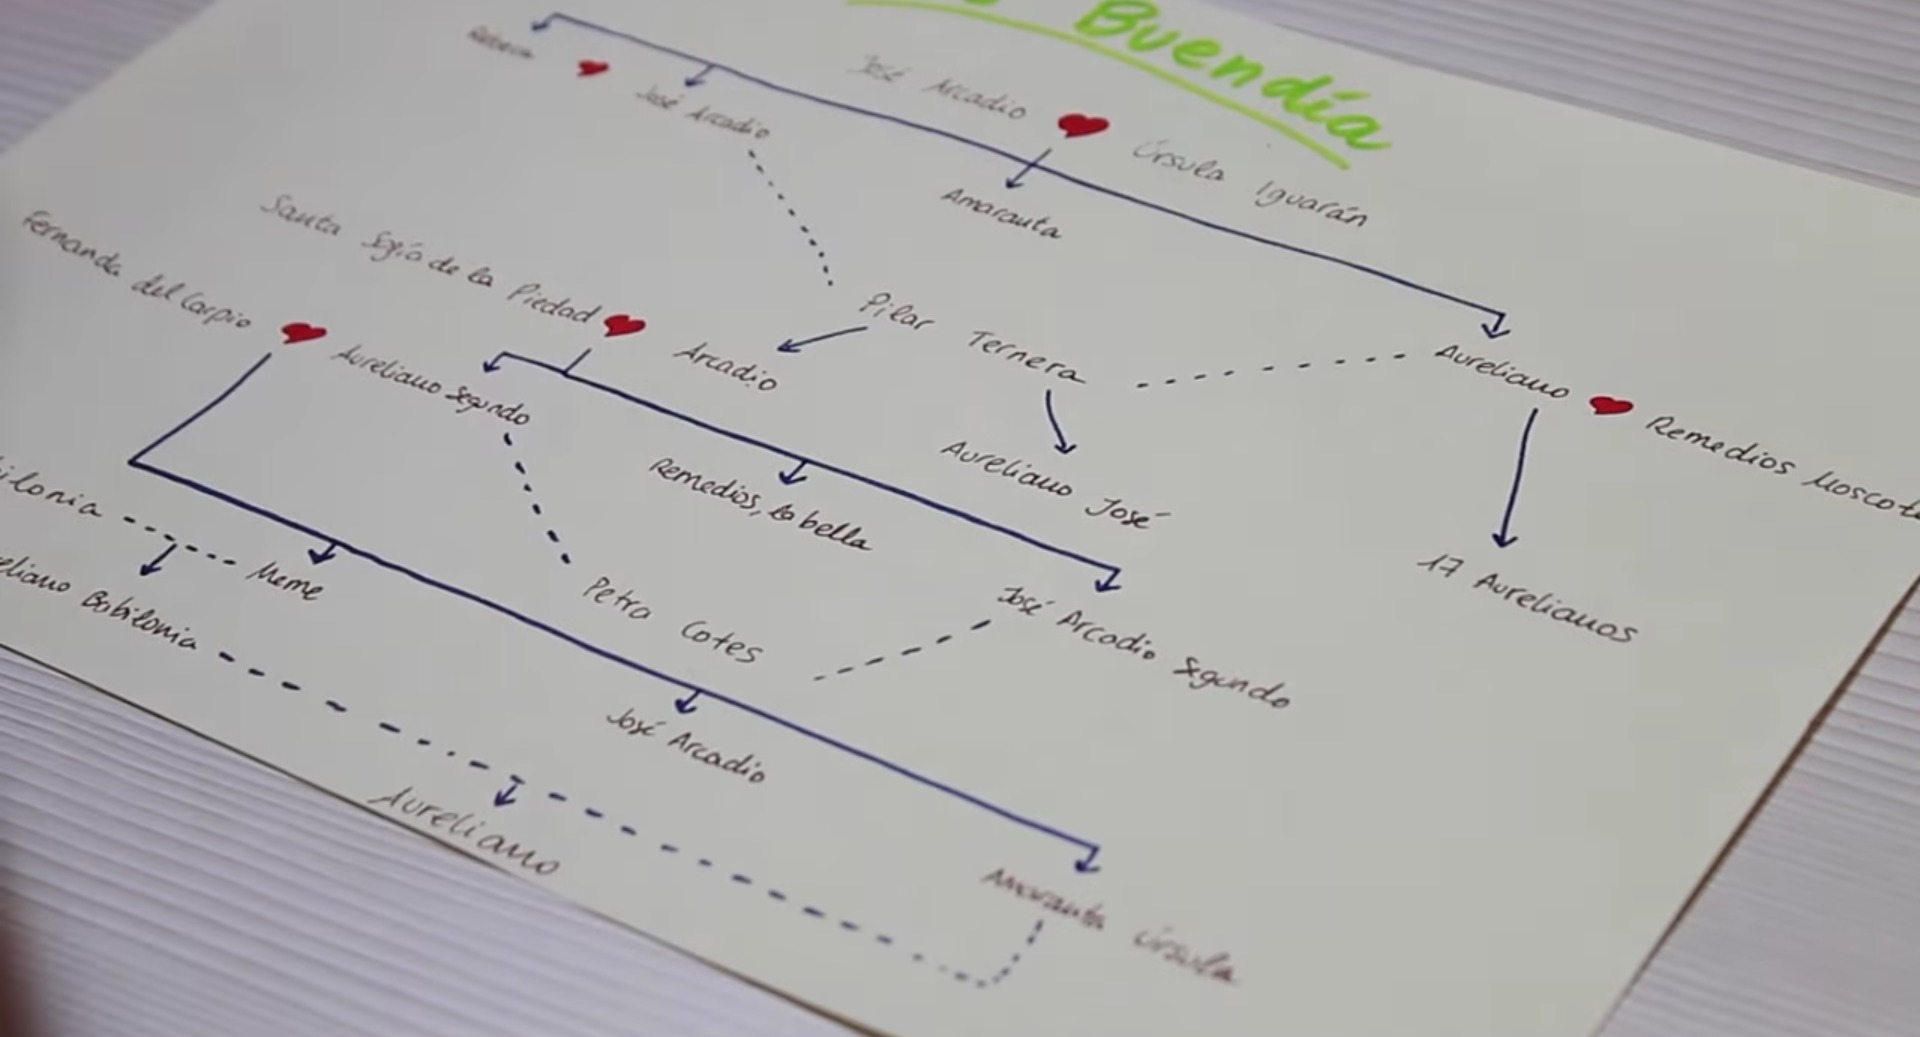 Buendía
Rebeca
José Arcadio
José Arcadio
Úrsula Iguarán
Amaranta
Santa Sofía de la Piedad
Fernanda del Carpio
Pilar Ternera
Arcadio
Aureliano
Remedios Moscote
Aureliano Segundo
Remedios, la bella
Aureliano José
17 Aurelianos
ilonia
Meme
eliano Babilonia
Petra Cotes
José Arcadio Segundo
José Arcadio
Aureliano
Amaranta Úrsula